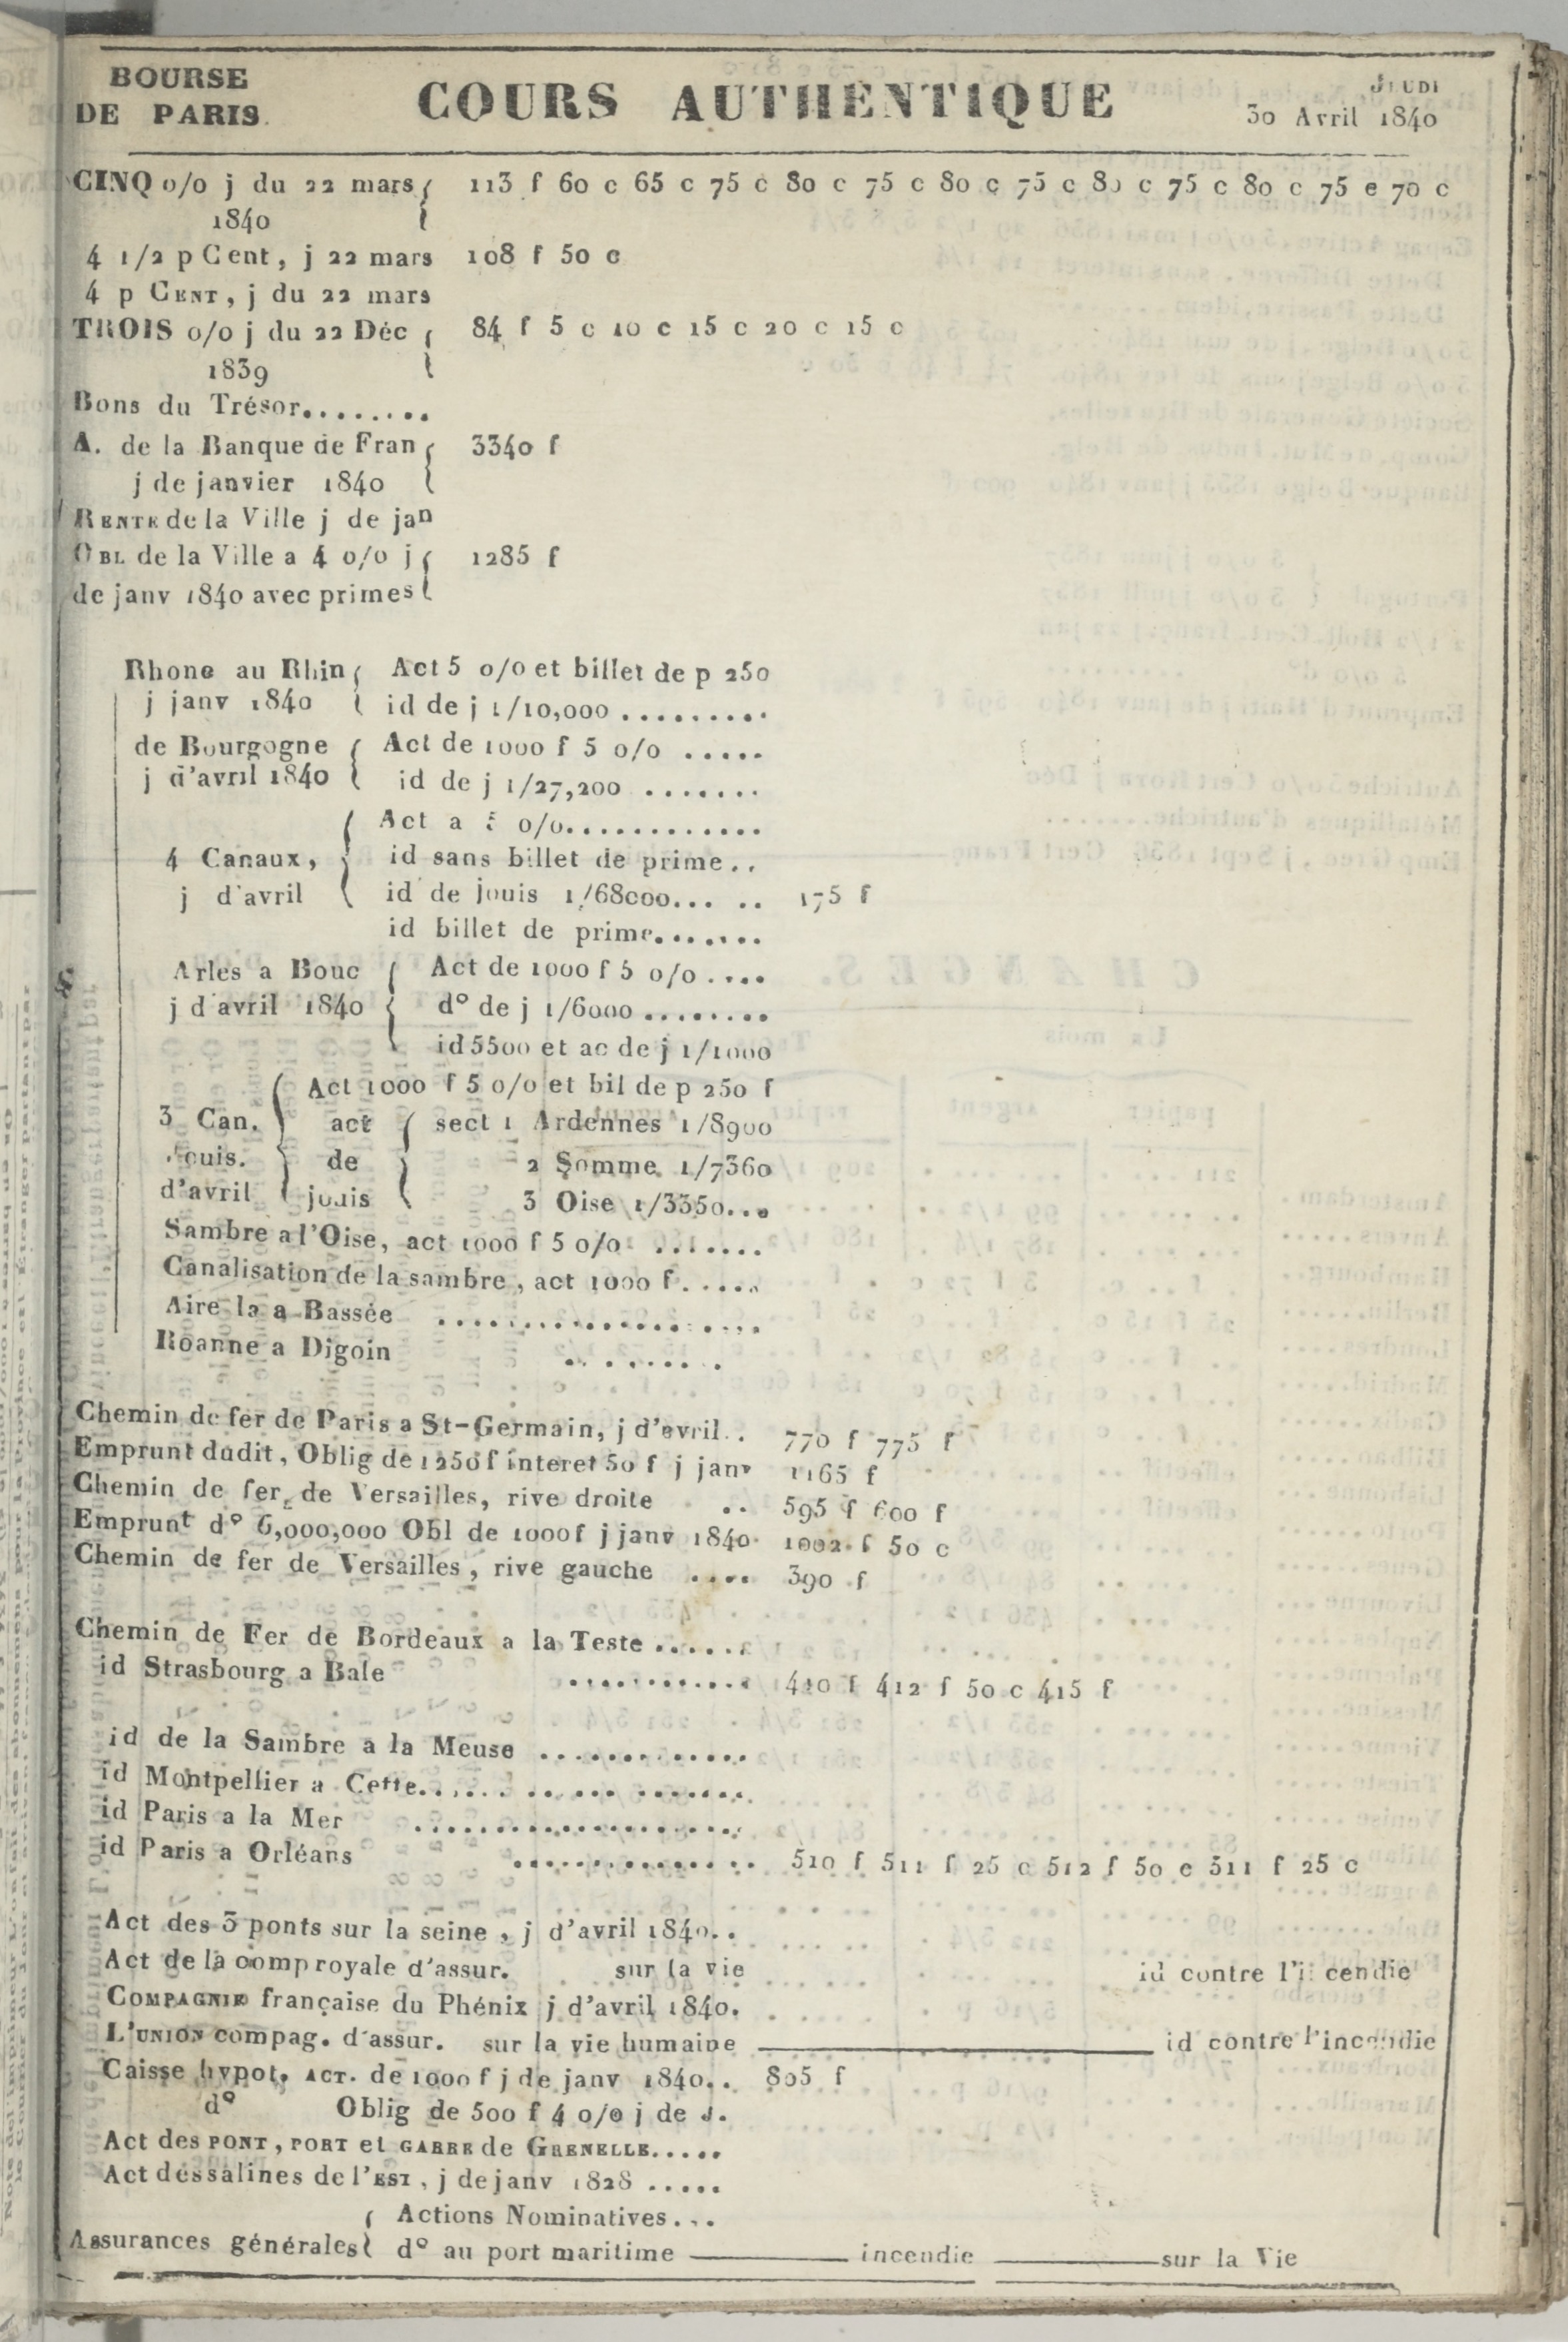 BOURSE
DE PARIS.
COURS AUTHENTIQUE
JEUDI
30 Avril 1840
CINQ o/o j du 22 mars 113 f 60 c 65 c 75 c 80 c 75 c 80 c 75 c 80 c 75 c 80 c 75 e 70 c
1840
4 1/2 p Cent, j 22 mars 108 f 50 c
4 p CENT, j du 22 mars
TROIS o/o j du 22 Déc 84 f 5 c 10 c 15 c 20 c 15 c
1839
Bons du Trésor........
A. de la Banque de Fran 3340 f
j de janvier 1840
RENTE de la Ville j de jan
OBL de la Ville a 4 o/o j 1285 f
de janv 1840 avec primes
Rhone au Rhin Act 5 o/o et billet de p 250
j janv 1840 id de j 1/10,000 .........
de Bourgogne Act de 1000 f 5 o/o .....
j d'avril 1840 id de j 1/27,200 .......
Act a 5 o/o............
4 Canaux, id sans billet de prime..
j d'avril id de jouis 1/68000... .. 175 f
id billet de prime.......
Arles a Bouc Act de 1000 f 5 o/o ....
j d'avril 1840 d° de j 1/6000 ........
id 5500 et ac de j 1/1000
Act 1000 f 5 o/o et bil de p 250 f
3 Can. act sect 1 Ardennes 1/8900
jouis. de 2 Somme 1/7360
d'avril jouis 3 Oise 1/3350...
Sambre a l'Oise, act 1000 f 5 o/o .......
Canalisation de la sambre, act 1000 f.....
Aire la a Bassée ....................
Roanne a Digoin ........
Chemin de fer de Paris a St-Germain, j d'avril.. 770 f 775 f
Emprunt dudit, Oblig de 1250 f interet 50 f j janv 1165 f
Chemin de fer de Versailles, rive droite .. 595 f 600 f
Emprunt d° 6,000,000 Obl de 1000 f j janv 1840. 1002 f 50 c
Chemin de fer de Versailles, rive gauche .... 390 f
Chemin de Fer de Bordeaux a la Teste ......
id Strasbourg a Bale ............ 410 f 412 f 50 c 415 f
id de la Sambre a la Meuse .............
id Montpellier a Cette...... ..... .......
id Paris a la Mer ....................
id Paris a Orléans ............... 510 f 511 f 25 c 512 f 50 c 511 f 25 c
Act des 3 ponts sur la seine, j d'avril 1840..
Act de la comp royale d'assur. sur la vie id contre l'incendie
COMPAGNIE française du Phénix j d'avril 1840.
L'UNION compag. d'assur. sur la vie humaine id contre l'incendie
Caisse hypot. ACT. de 1000 f j de janv 1840.. 805 f
d° Oblig de 500 f 4 o/o j de J.
Act des PONT, PORT et GARRE de GRENELLE.....
Act des salines de l'EST, j de janv 1828 .....
Actions Nominatives...
Assurances générales d° au port maritime incendie sur la Vie